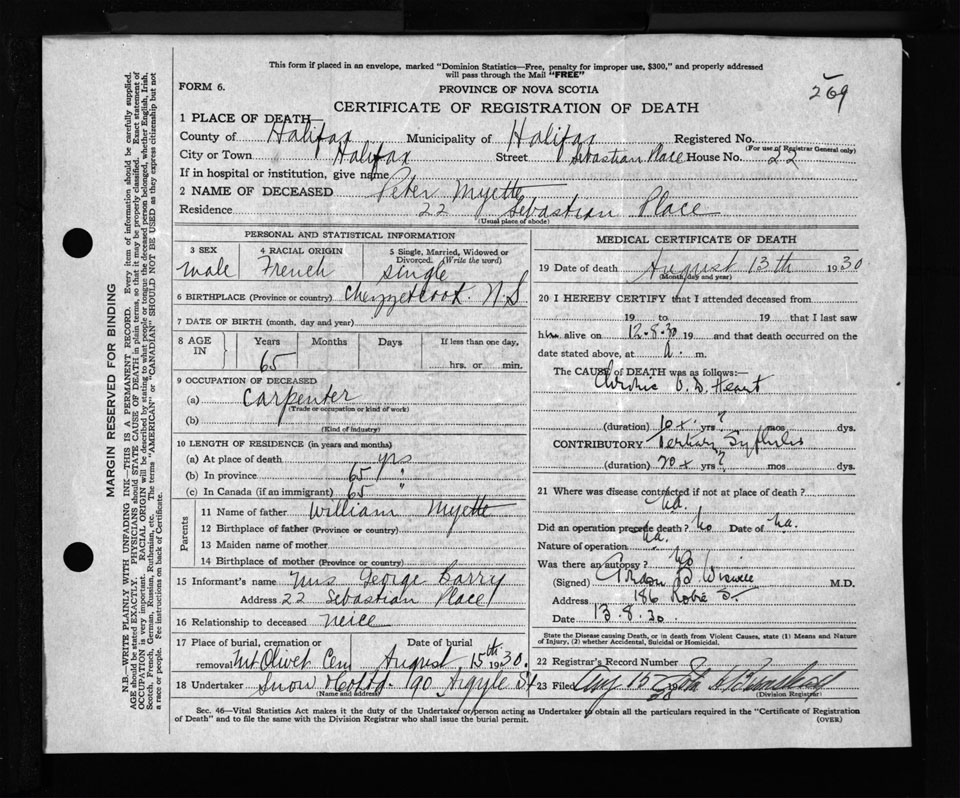 This form if placed in an envelope, marked "Dominion Statistics—Free, penalty for improper use, $300," and properly addressed
will pass through the Mail "FREE"
FORM 6.
PROVINCE OF NOVA SCOTIA
269
CERTIFICATE OF REGISTRATION OF DEATH
1 PLACE OF DEATH
County of Halifax Municipality of Halifax Registered No.
(For use of Registrar General only)
City or Town Halifax Street Sebastian Place House No. 22
If in hospital or institution, give name
2 NAME OF DECEASED Peter Myette
Residence 22 Sebastian Place
(Usual place of abode)
PERSONAL AND STATISTICAL INFORMATION
3 SEX 4 RACIAL ORIGIN 5 Single, Married, Widowed or Divorced. (Write the word)
male French single
6 BIRTHPLACE (Province or country) Chezzetcook. N.S
7 DATE OF BIRTH (month, day and year)
8 AGE IN Years Months Days If less than one day,
65 hrs. or min.
9 OCCUPATION OF DECEASED
(a) Carpenter
(Trade or occupation or kind of work)
(b)
(Kind of industry)
10 LENGTH OF RESIDENCE (in years and months)
(a) At place of death yrs
(b) In province 65 "
(c) In Canada (if an immigrant) 65 "
Parents
11 Name of father William Myette
12 Birthplace of father (Province or country)
13 Maiden name of mother
14 Birthplace of mother (Province or country)
15 Informant's name Mrs George Barry
Address 22 Sebastian Place
16 Relationship to deceased neice
17 Place of burial, cremation or Date of burial
removal Mt Olivet Cem August 15th 1930.
18 Undertaker Snow & Co Ltd. 90 Argyle St
(Name and address)
MEDICAL CERTIFICATE OF DEATH
19 Date of death August 13th 1930
(Month, day and year)
20 I HEREBY CERTIFY that I attended deceased from
19 to 19 that I last saw
him alive on 12.8.30 19 and that death occurred on the
date stated above, at a. m.
The CAUSE of DEATH was as follows:—
Chronic V. D. Heart
(duration) 10 + yrs ? mos dys.
CONTRIBUTORY Tertiary Syphilis
(duration) 20 + yrs ? mos dys.
21 Where was disease contracted if not at place of death?
na.
Did an operation precede death? no Date of na.
Nature of operation na.
Was there an autopsy? no
(Signed) Wiswell M.D.
Address 186 Robie St.
Date 13.8.30.
State the Disease causing Death, or in death from Violent Causes, state (1) Means and Nature
of Injury, (2) whether Accidental, Suicidal or Homicidal.
22 Registrar's Record Number
23 Filed Aug 15 30 John
(Division Registrar)
Sec. 46—Vital Statistics Act makes it the duty of the Undertaker or person acting as Undertaker to obtain all the particulars required in the "Certificate of Registration
of Death" and to file the same with the Division Registrar who shall issue the burial permit. (OVER)
MARGIN RESERVED FOR BINDING
N.B.—WRITE PLAINLY WITH UNFADING INK—THIS IS A PERMANENT RECORD. Every item of information should be carefully supplied.
AGE should be stated EXACTLY. PHYSICIANS should STATE CAUSE OF DEATH in plain terms, so that it may be properly classified. Exact statement of
OCCUPATION is very important. RACIAL ORIGIN will be described by stating to what people or tongue the deceased person belonged, whether English, Irish,
Scotch, French, German, Russian, Ruthenian, etc. The terms "AMERICAN" or "CANADIAN" SHOULD NOT BE USED as they express citizenship but not
a race or people. See instructions on back of Certificate.